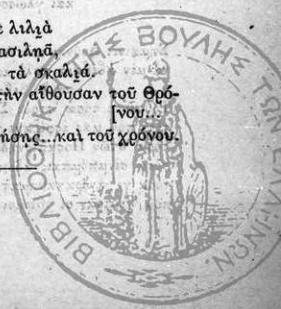 ὲ λιλιὰ
ασιληᾶ,
τὰ σκαλιά.
τὴν αἴθουσαν τοῦ Θρό-
[νου...
ήσης...καὶ τοῦ χρόνου.
ΒΙΒΛΙΟΘΗΚΗ ΤΗΣ ΒΟΥΛΗΣ ΤΩΝ ΕΛΛΗΝΩΝ